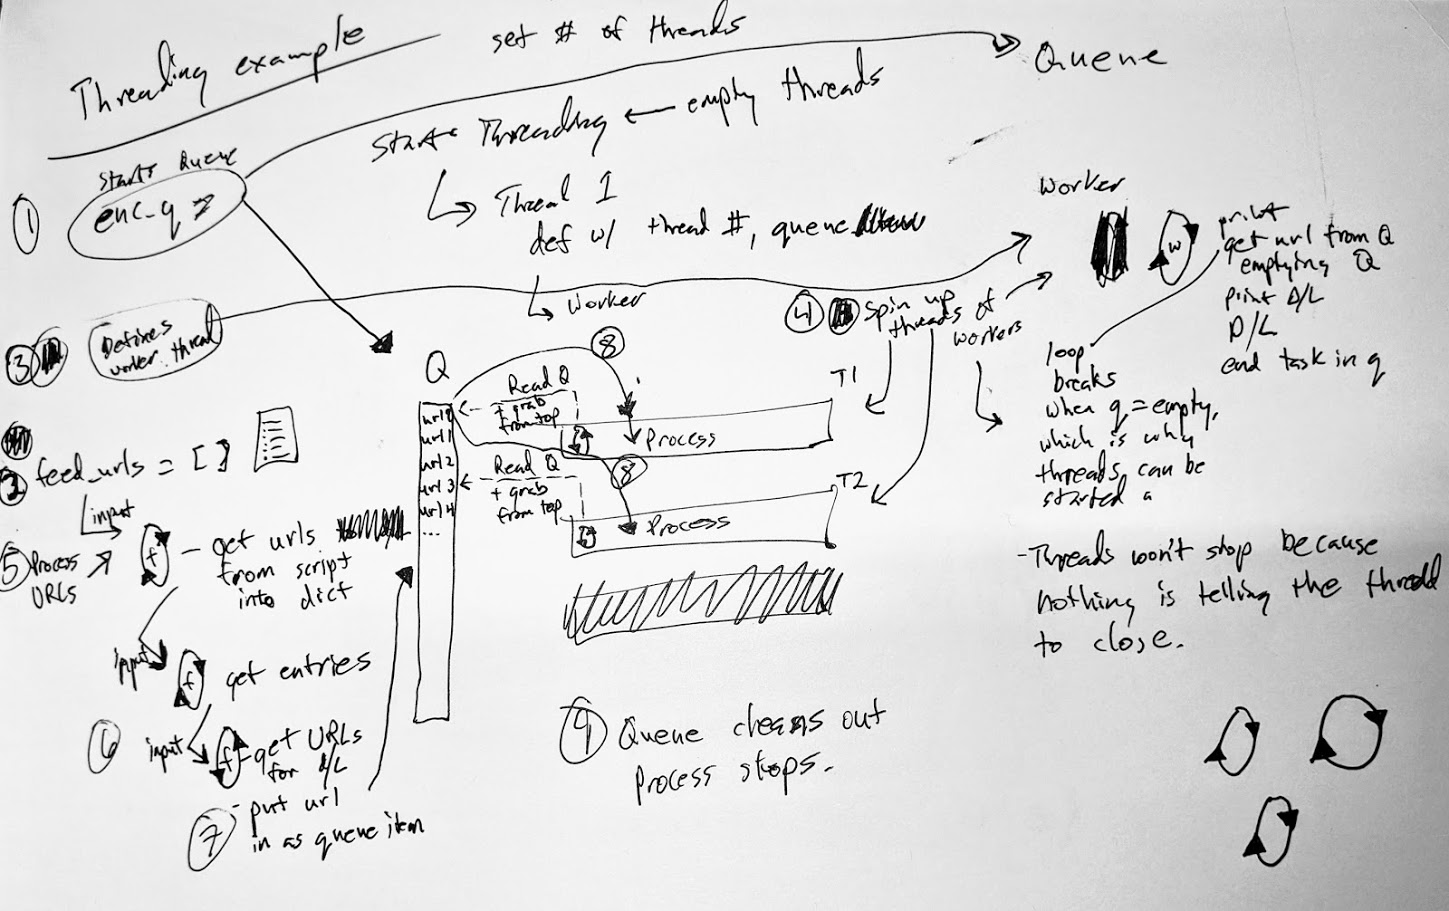 Threading example
set # of threads
Queue
start Threading ← empty threads
Thread 1
def w/ thread #, queue
Worker
① starts Queue
enc_q
③ Defines
worker thread
② feed_urls = [ ]
input
⑤ Process
URLs
f - get urls
from script
into dict
input
f get entries
⑥ input
f - get URLs
for D/L
⑦ - put url
in as queue item
Q
url 0
url 1
url 2
url 3
url 4
...
Read Q
+ grab
from top
⑧
Process
T1
Read Q
+ grab
from top
⑧
Process
T2
④ Spin up
threads of
workers
⑨ Queue cleans out
Process stops.
Worker
w
print
get url from Q
emptying Q
print D/L
D/L
end task in q
loop
breaks
when q = empty,
which is why
threads can be
started a
- Threads won't stop because
nothing is telling the thread
to close.